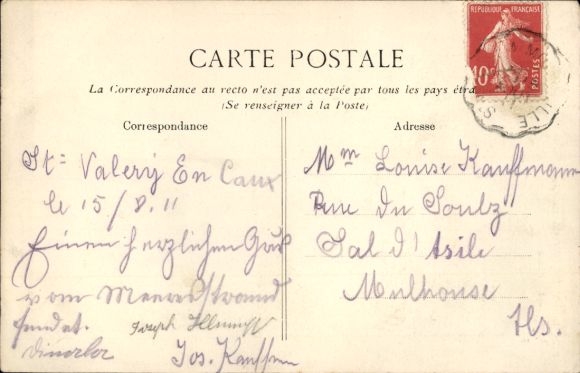 CARTE POSTALE
La Correspondance au recto n'est pas acceptée par tous les pays étra
(Se renseigner à la Poste)
Correspondance
Adresse
RÉPUBLIQUE FRANÇAISE
10c
POSTES
St= Valery En Caux
le 15/8.11
Einen herzlichen Gruß
vom Meeresstrand
sendet.
Joseph
Jos. Kauffmann
Mme Louise Kauffmann
Rue du Soultz
Sal d'Asile
Mulhouse
Els.